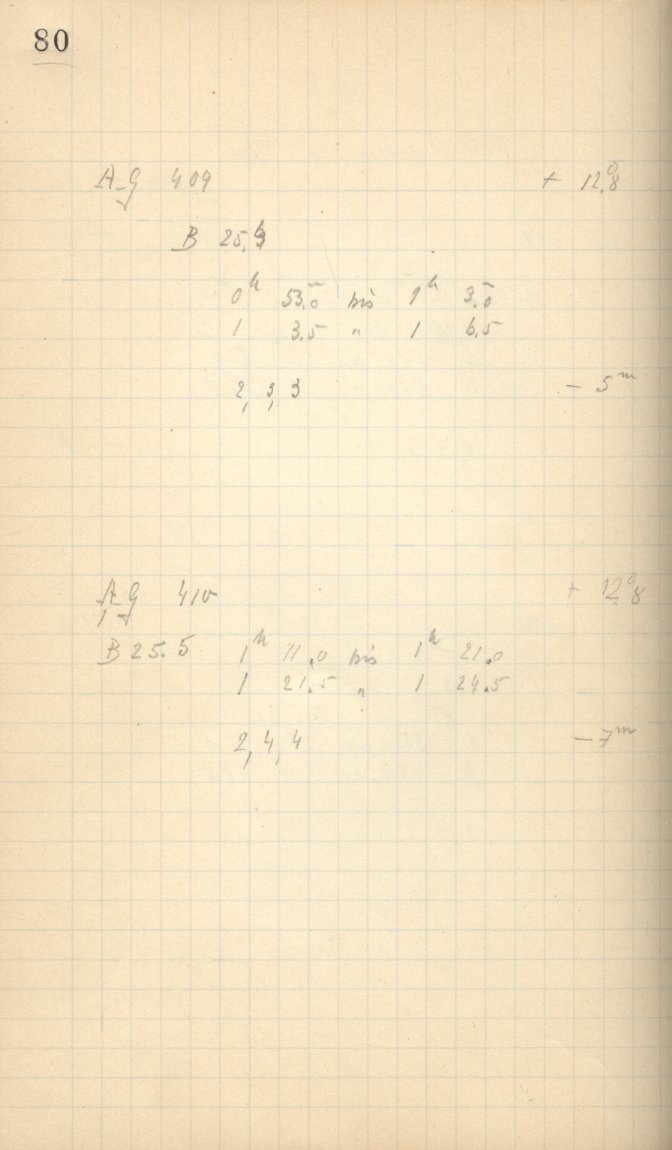 80
A G 409 + 12°.8
B 25.
0h 53.m0 bis 1h 3.m0
1 3.5 " 1 6.5
2, 3, 3 - 5m
A G 410 + 12°.8
B 25.5 1h 11.0 bis 1h 21.0
1 21.5 " 1 24.5
2, 4, 4 - 7m